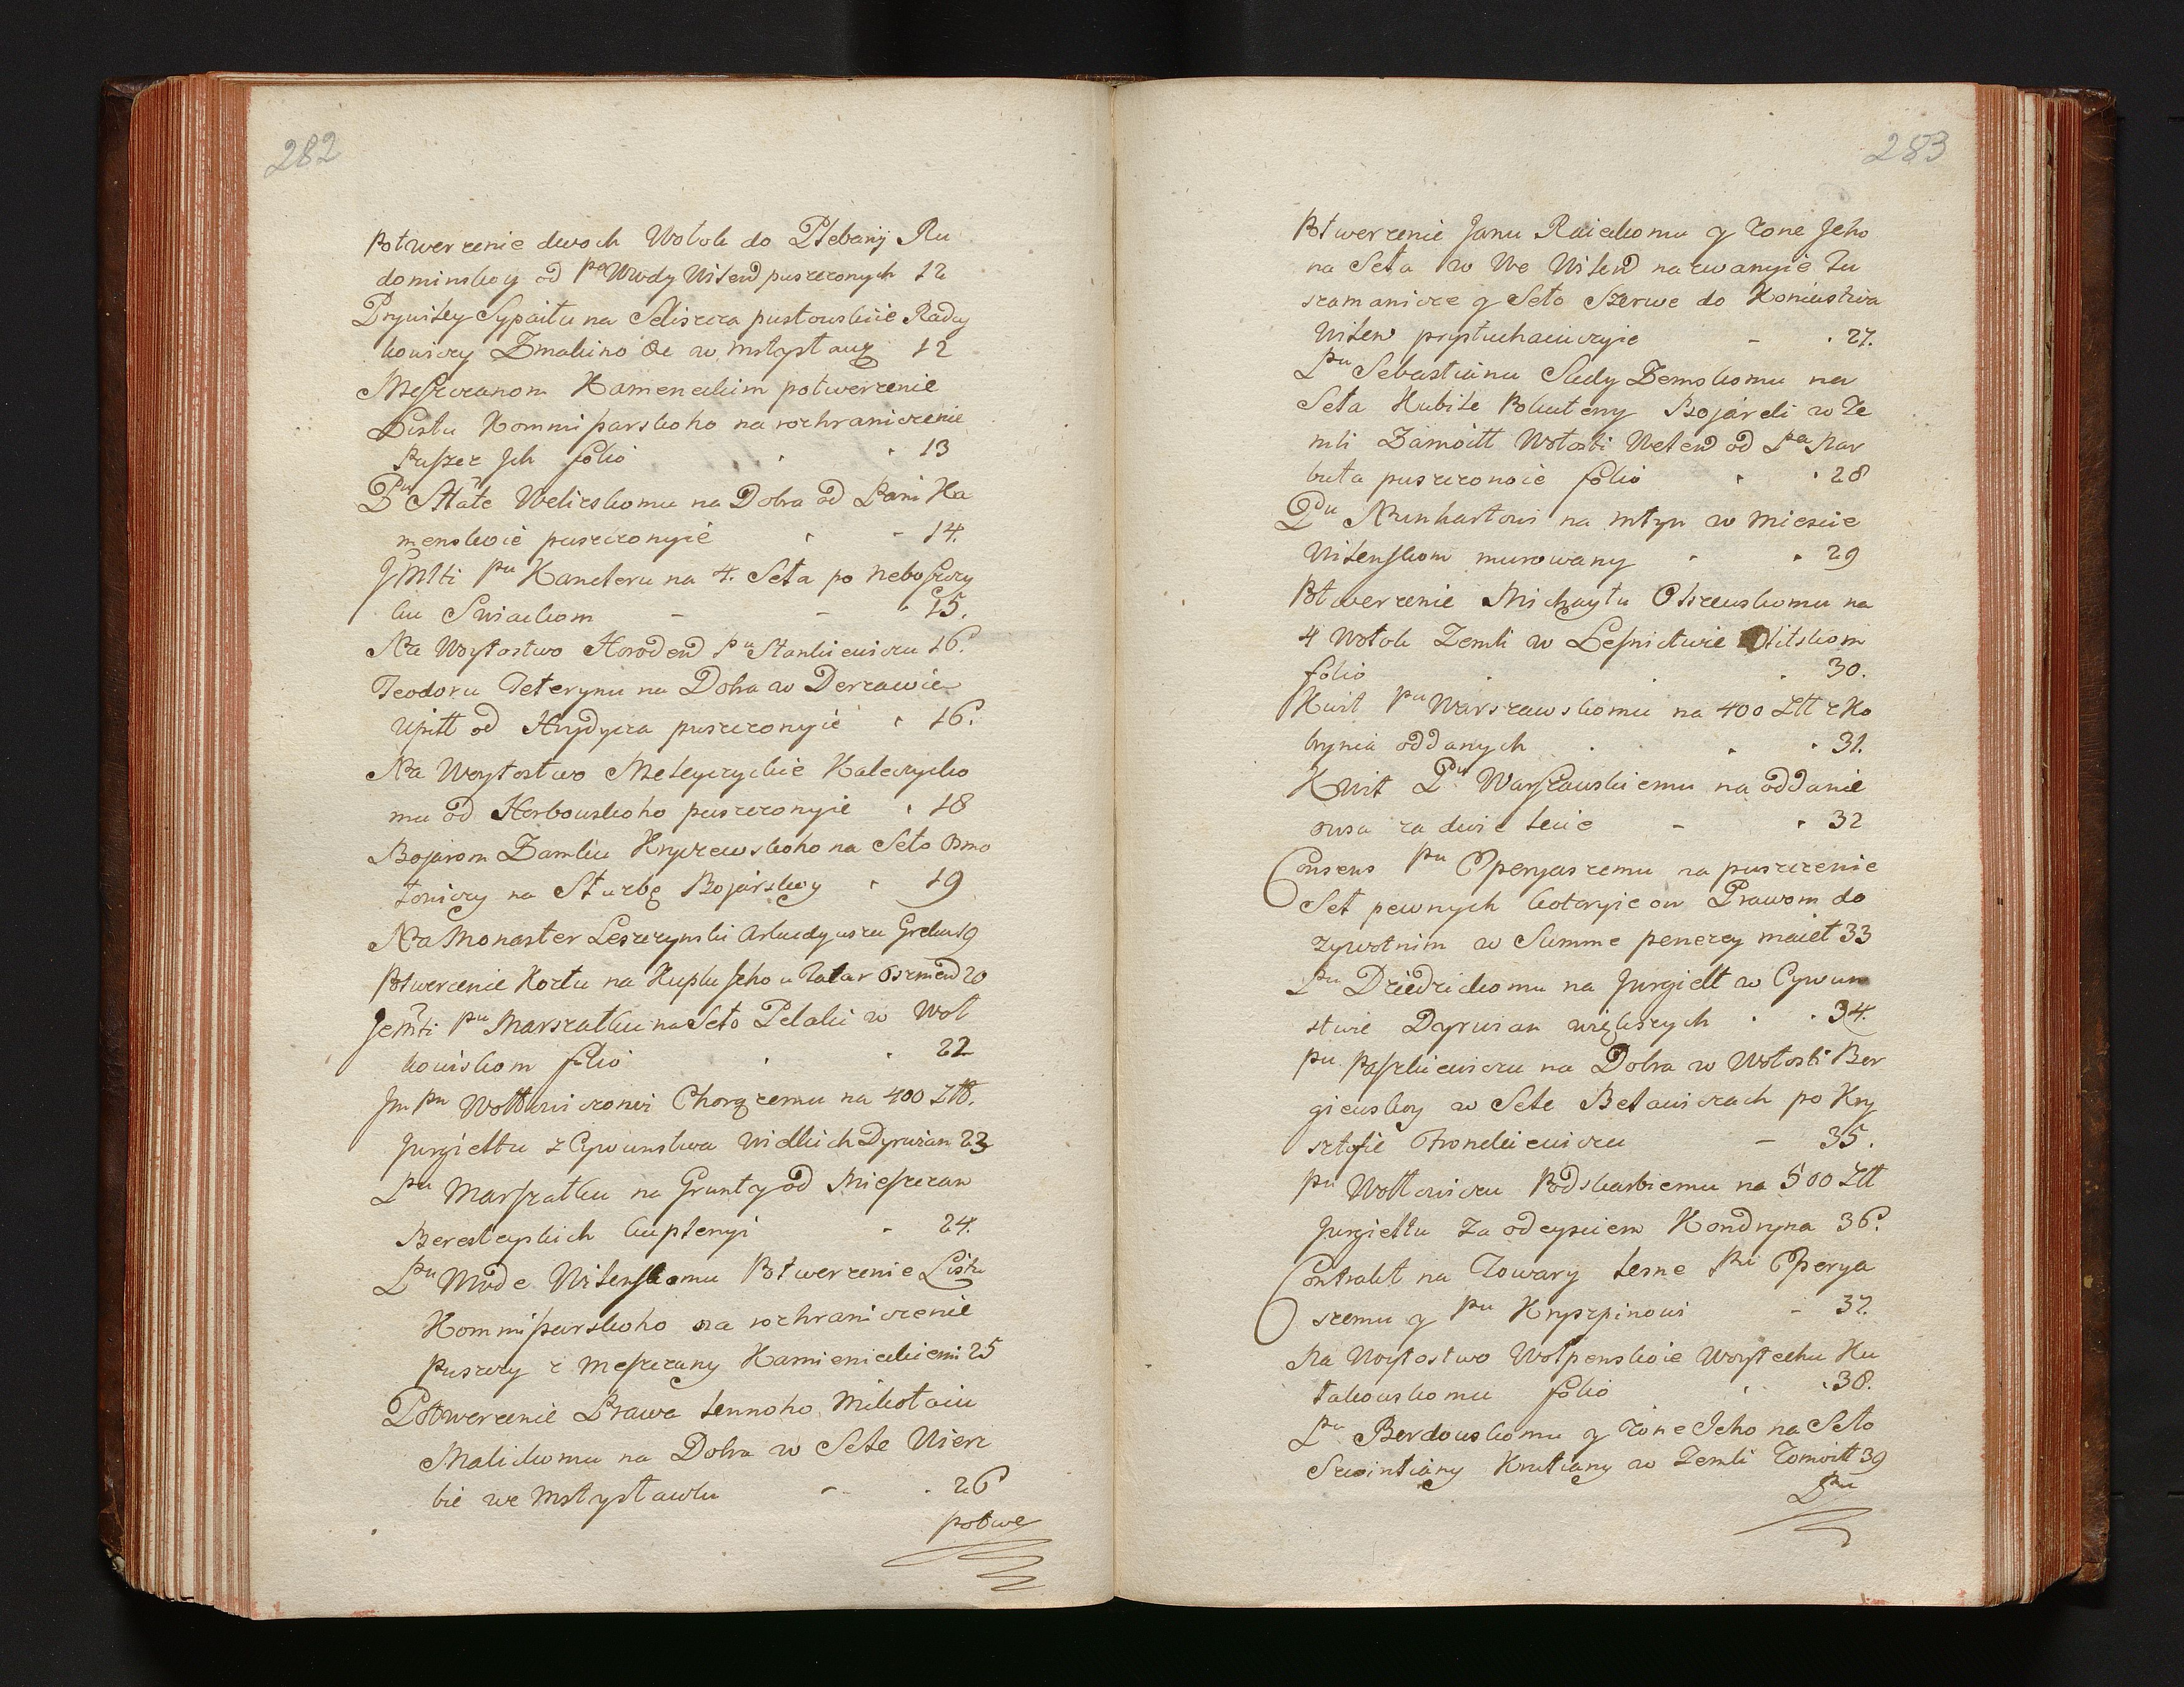 282
Potwerzenie dwoch Wołok do Plebanij Ru
dominskoy od Pa Wwdy Wilend puszczonych 12
Prywiley Sypaitu na Seliszcza pustowskiie Rady
kowiczy Zmakino &c w Mstysł aug 12
Meszczanom Kameneckim potwerzenie
Listu Kommissarskoho na rozhraniczenie
Puszcz Jch folio 13
Pu Stte Weliżskomu na Dobra od Pani Ka
menskoie puszczonyie 14.
JMlti Pu Kancleru na 4. Seła po neboszczy
ku Swiackom 15.
Na Woytostwo Horodend Pu Stankiewiczu 16.
Teodoru Teterynu na Dobra w Derżawie
Upitt od Hrydycza puszczonyie 16.
Na Woytostwo Meleyczyckie Kaleczycko
mu od Horbowskoho puszczonyie 18
Bojarom Zamku Kryczewskoho na Seło Osmo
łowiczy na Służbę Bojarskoy 19
Na Monaster Leszczynski Arkadyuszu Greku 19
Potwerzenie Kortu na Kuplu Jeho u Tatar Oszmend 20
Jemti Pu Marszałku na Seło Pelaki w Woł
kowiskom folio 22
Jm Pu Wołłowiczowi Chorążemu na 400 Złł.
Jurgieltu z Cywunstwa Wielkich Dyrwian 23
Pu Marszałku na Grunty od Mieszczan
Beresteyskich kuplenyi 24.
Pu Wwde Wilenskomu Potwerzenie Listu
Kommissarskoho na rozhraniczenie
Puszczy z Meszczany Kamienieckiemi 25
Potwerzenie Prawa Lennoho Mikołaiu
Malickomu na Dobra w Sele Wierz
bie we Mstysławlu 26
Potwe
283
Potwerzenie Janu Raieckomu y żone Jeho
na Seła w We Wilend nazwanyie Tu
szamanicze y Seło Szerwe do Koniustwa
Wilen prysłuchaiuczyie 27.
Pu Sebastianu Sudy Zemskomu na
Seła Kubile Pokuteny Bojareli w Ze
mli Zamoitt Wołosti Welend od Pa Nar
buta puszczonoie folio 28
Pu Munhartowi na młyn w Miescie
Wilenskom murowany 29
Potwerzenie Michayłu Olszewskomu na
4 Wołok Zemli w Lesnictwie Olitskom
folio 30.
Kwit Pu Warszewskomu na 400 Złł z Ko
brynia oddanych 31.
Kwit Pu Warszawskiemu na oddanie
owsa za dwie Lecie 32
Consens Pu Operyaszemu za puszczenie
Seł pewnych kotoryie on Prawom do
żywotnim w Summe penezey maiet 33
Pu Dziedzickomu na Jurgielt w Cywun
stwie Dyrwian większych 34.
Pu Paszkiewiczu na Dobra w Wołosti Ber
giewskoy w Sele Beławiczach po Kry
sztofie Fronckiewiczu 35.
Pu Wołłowiczu Podskarbiemu na 500 Złł
Jurgieltu za odeysciem Kondryna 36.
Contrakt na Towary Lesne Pu Operya
szemu y Pu Kryszpinowi 37.
Na Woytostwo Wołpenskoie Woytechu Ku
łakowskomu folio 38.
Pu Berdowskomu y żone Jeho na Seło
Swointiany Krutiany w Zemli Żomoitt 39
Pu